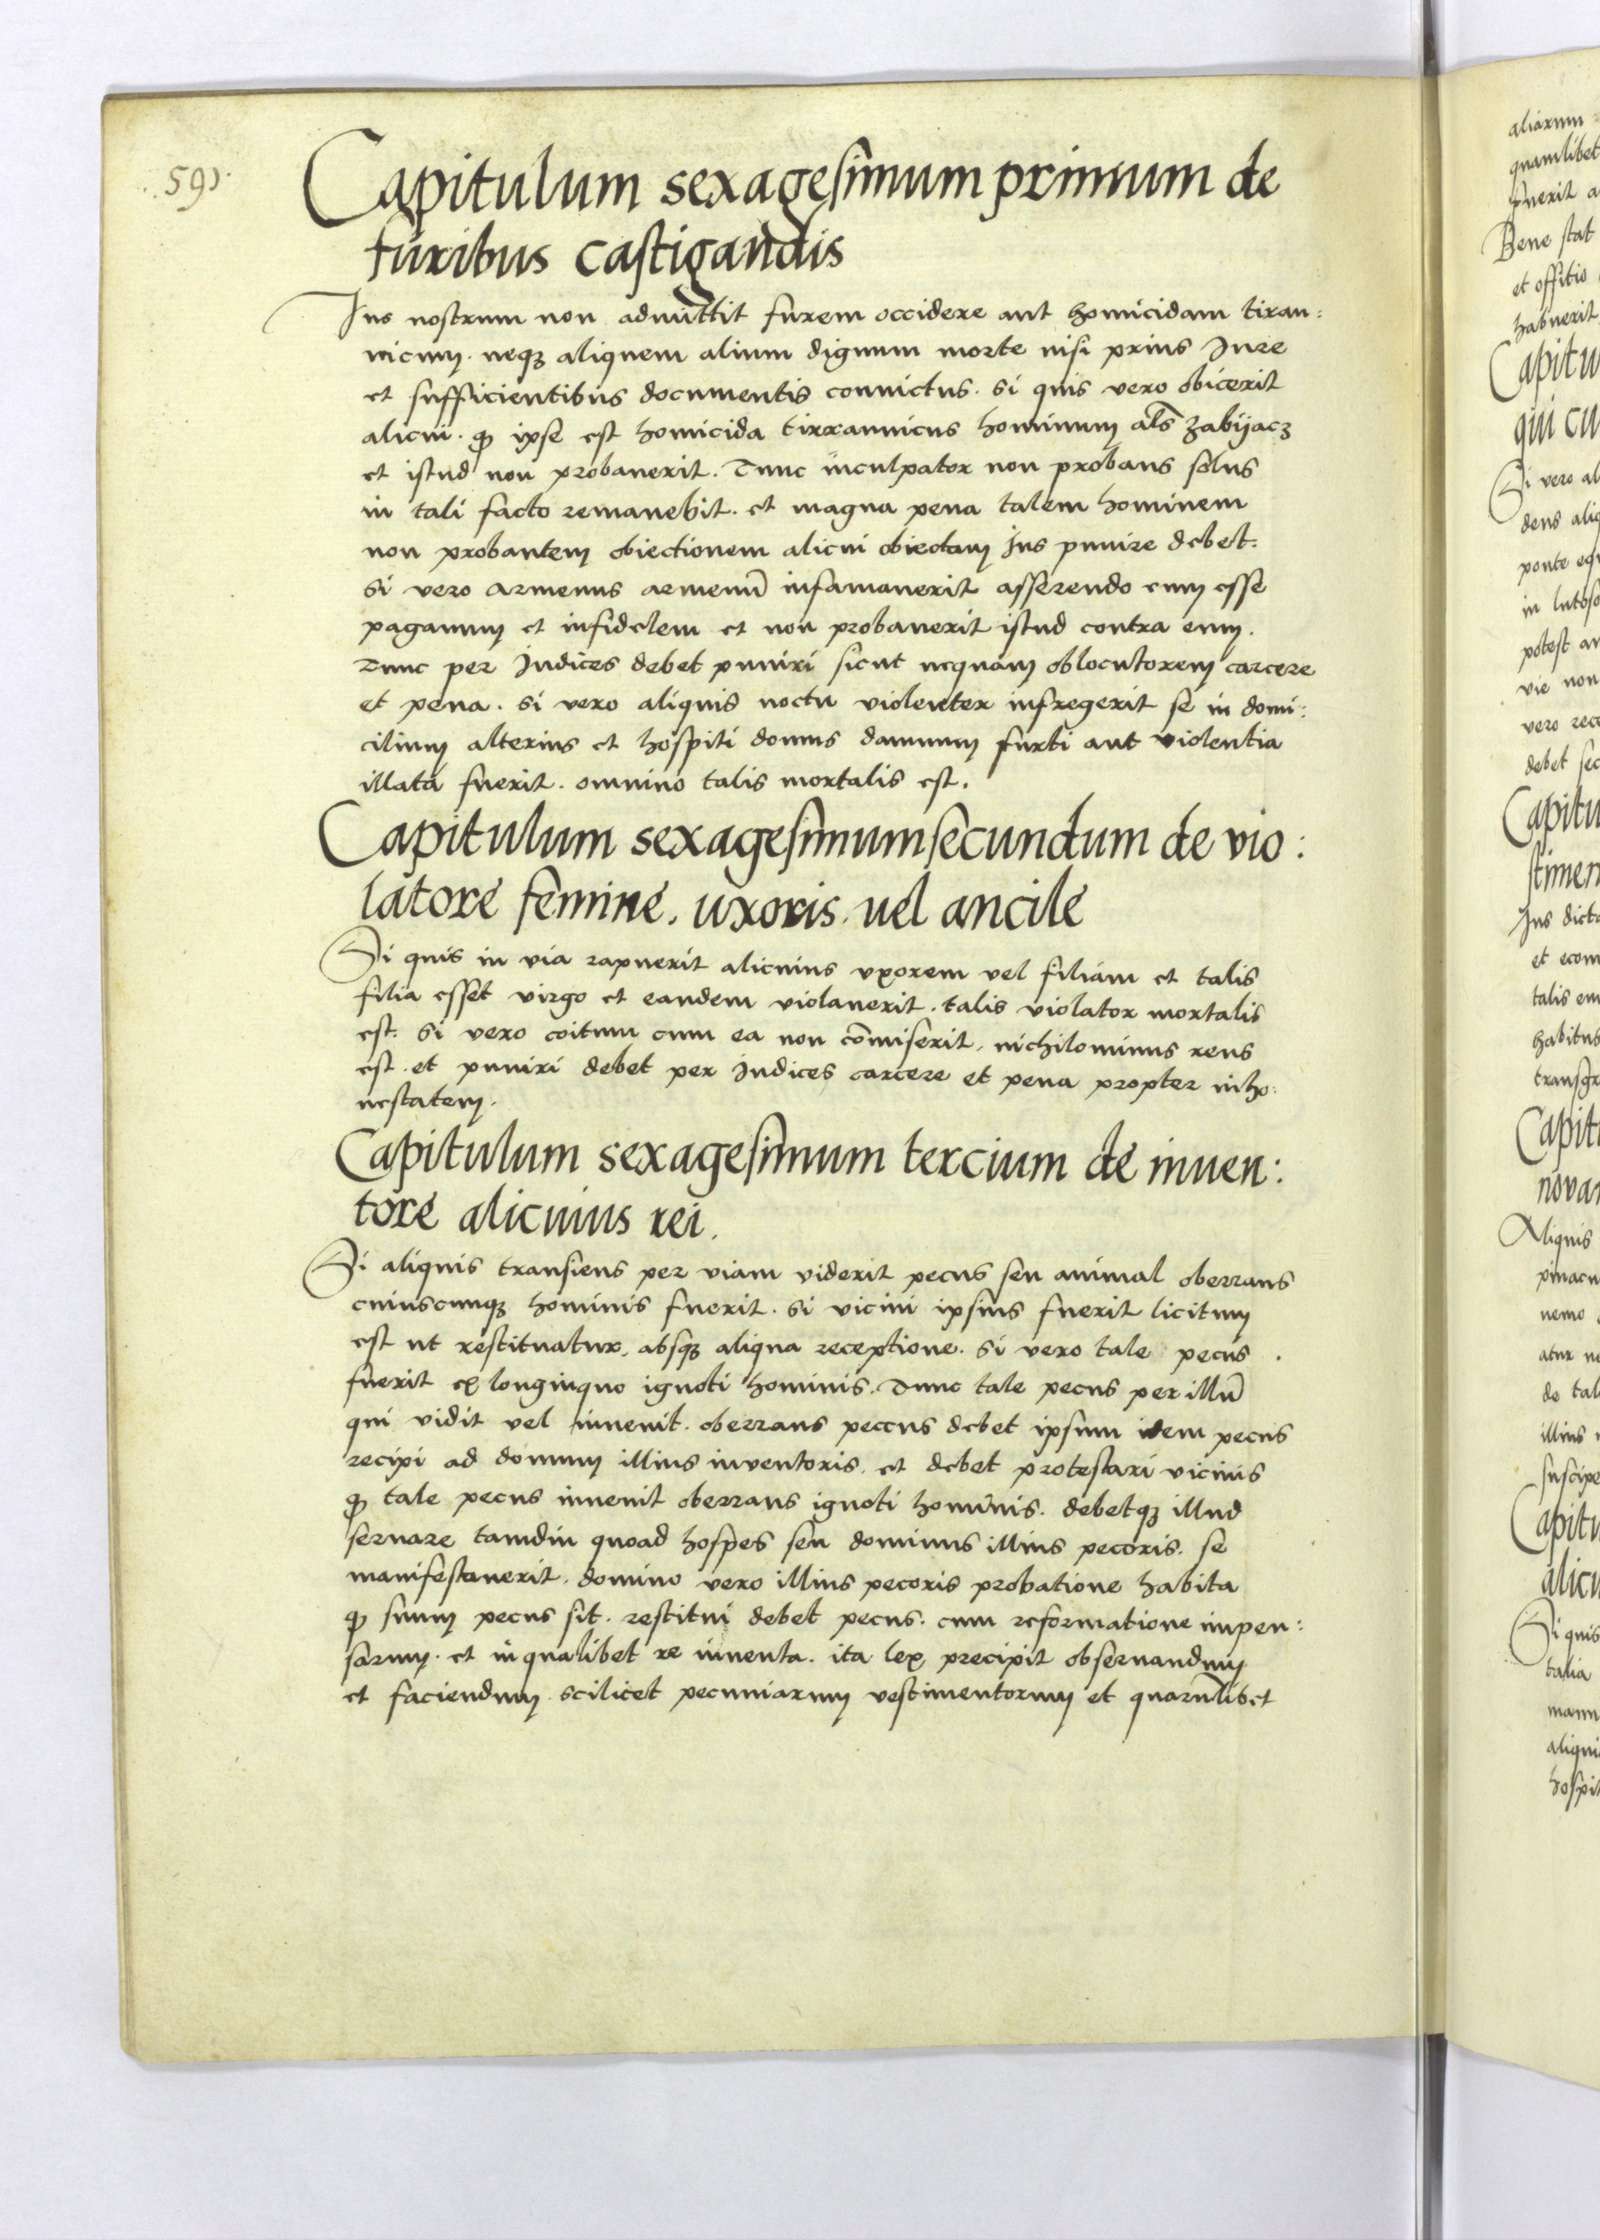 591.
Capitulum sexagesimum primum de
furibus castigandis
Ius nostrum non admittit furem occidere aut homicidam tiran:
nicum. neqꝫ aliquem alium dignum morte nisi prius Iure
et sufficientibus documentis conuictus. si quis vero obicerit
alicui. ꝙ ipse est homicida tirrannicus hominum al̄s zabijacz
et istud non probauerit. Tunc inculpator non probans solus
in tali facto remanebit. et magna pena talem hominem
non probantem obiectionem alicui obiectam Ius punire debet.
si vero Armenus armenū infamauerit asserendo eum esse
paganum et infidelem et non probauerit istud contra eum.
Tunc per Iudices debet puniri sicut nequam oblocutorem carcere
et pena. si vero aliquis noctu violenter infregerit se in domi:
cilium alterius et hospiti domus damnum furti aut violentia
illata fuerit. omnino talis mortalis est.
Capitulum sexagesimum secundum de vio:
latore femine. uxoris. uel ancile
Si quis in via rapuerit alicuius vxorem vel filiam et talis
filia esset virgo et eandem violauerit. talis violator mortalis
est. si vero coitum cum ea non cōmiserit. nichilominus reus
est. et puniri debet per Iudices carcere et pena propter inho:
nestatem.
Capitulum sexagesimum tercium de inuen:
tore alicuius rei.
Si aliquis transiens per viam viderit pecus seu animal oberrans
cuiuscunqꝫ hominis fuerit. si vicini ipsius fuerit licitum
est ut restituatur. absqꝫ aliqua receptione. si vero tale pecus.
fuerit ex longinquo ignoti hominis. Tunc tale pecus per illū
qui vidit vel inuenit. oberrans peccus debet ipsum idem pecus
recipi ad domum illius inventoris. et debet protestari vicinis
ꝙ tale pecus inuenit oberrans ignoti hominis. debetqꝫ illud
seruare tamdiu quoad hospes seu dominus illius pecoris. se
manifestauerit. domino vero illius pecoris probatione habita
ꝙ suum pecus sit. restitui debet pecus. cum reformatione impen:
sarum. et in qualibet re inuenta. ita lex precipit obseruandum
et faciendum. scilicet pecuniarum vestimentorum et quarūlibet
aliarum
quamlibet
Bene stat
et offitio
habuerit
Capitu
qui cu
Si vero al
dens aliq
ponte equ
in lutoso
potest au
vie non
vero rece
debet sec
Capitu
stimen
Ius dicta
et econ
talis em
habitus
transgr
Capit
novar
Aliquis
nemo
atur ne
de tal
illius
suscipe
Capitu
alicu
Si quis
talia
manu
aliqui
hospit